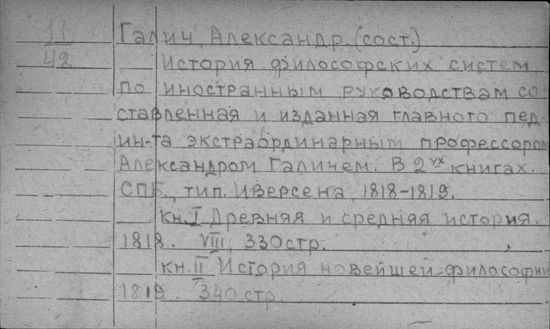 11
42
Галич, Александр. (сост.)
История философских систем
по иностранным руководствам со
ставленная и изданная главного пед.
ин-та экстраординарным профессором
Александром Галичем. В 2ух книгах.
СПБ., тип. Иверсена, 1818-1819.
кн. I Древняя и средняя история.
1818. VIII, 330 стр.
кн. II История новейшей философии
1819. 340 стр.